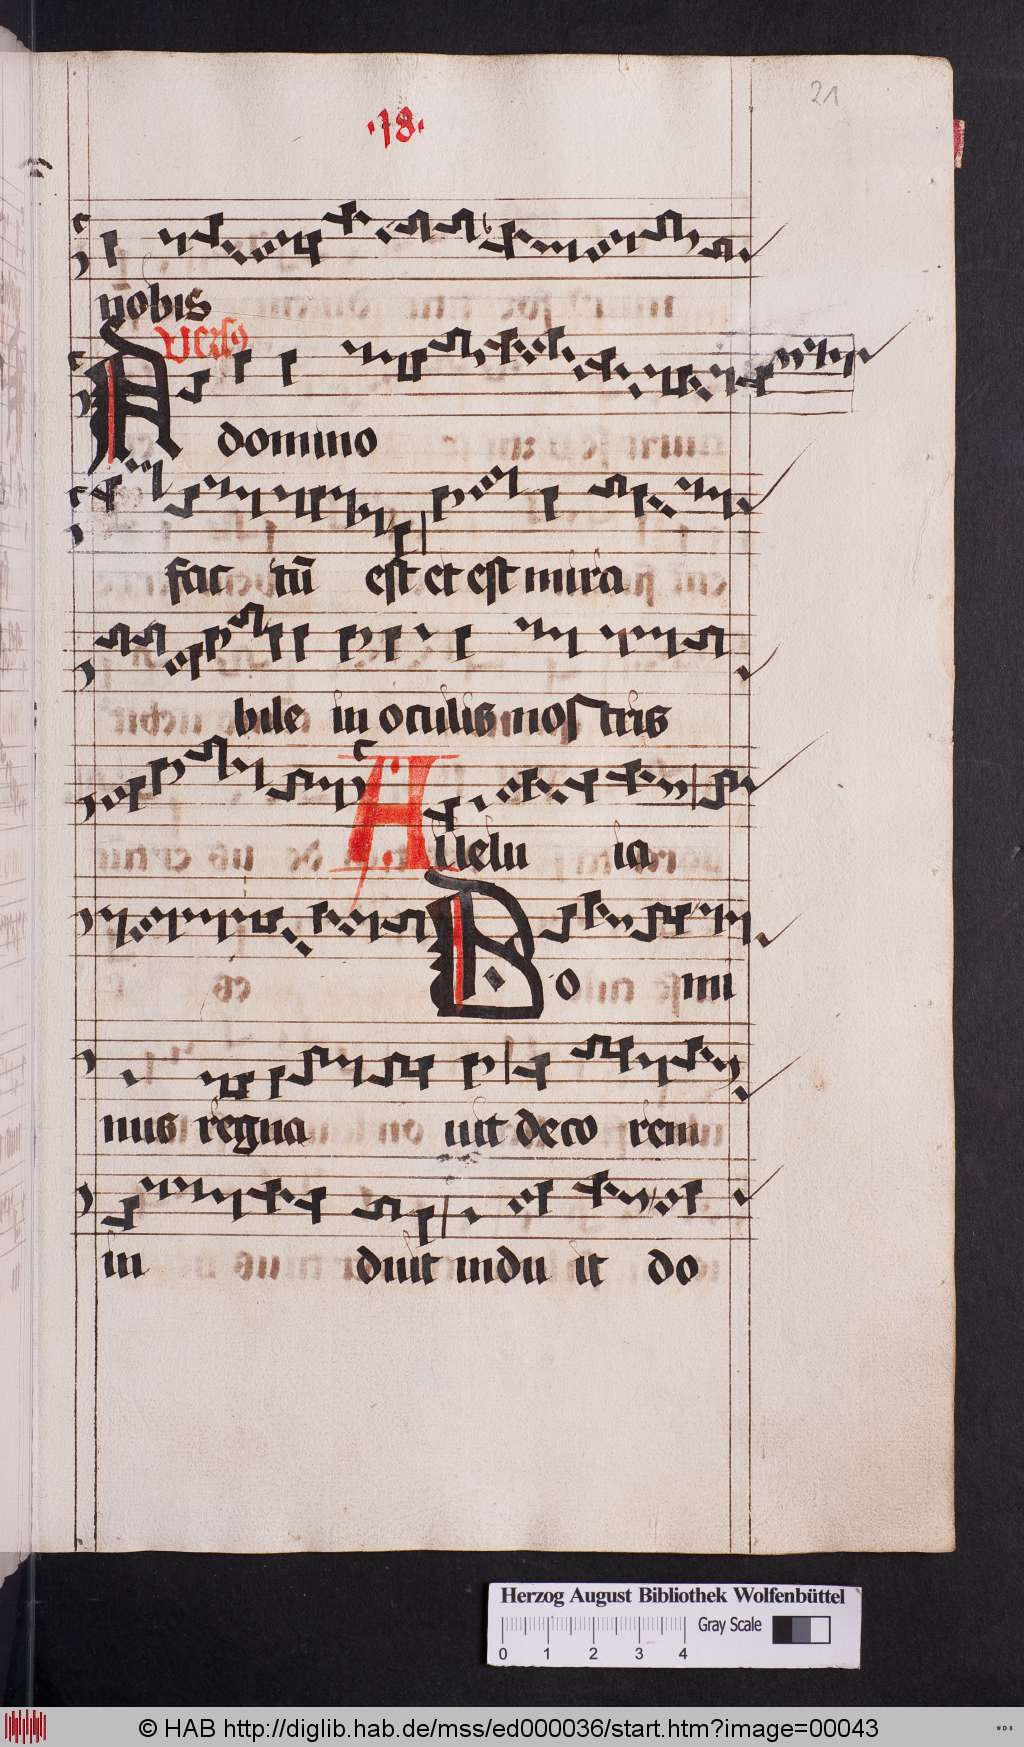 21
·18·
nobis
Verso
A domino
fac tū est et est mira
bile in oculis nostris
Allelu ia
Do mi
nus regna uit deco rem
in duit indu it do
Herzog August Bibliothek Wolfenbüttel
Gray Scale
0 1 2 3 4
© HAB http://diglib.hab.de/mss/ed000036/start.htm?image=00043